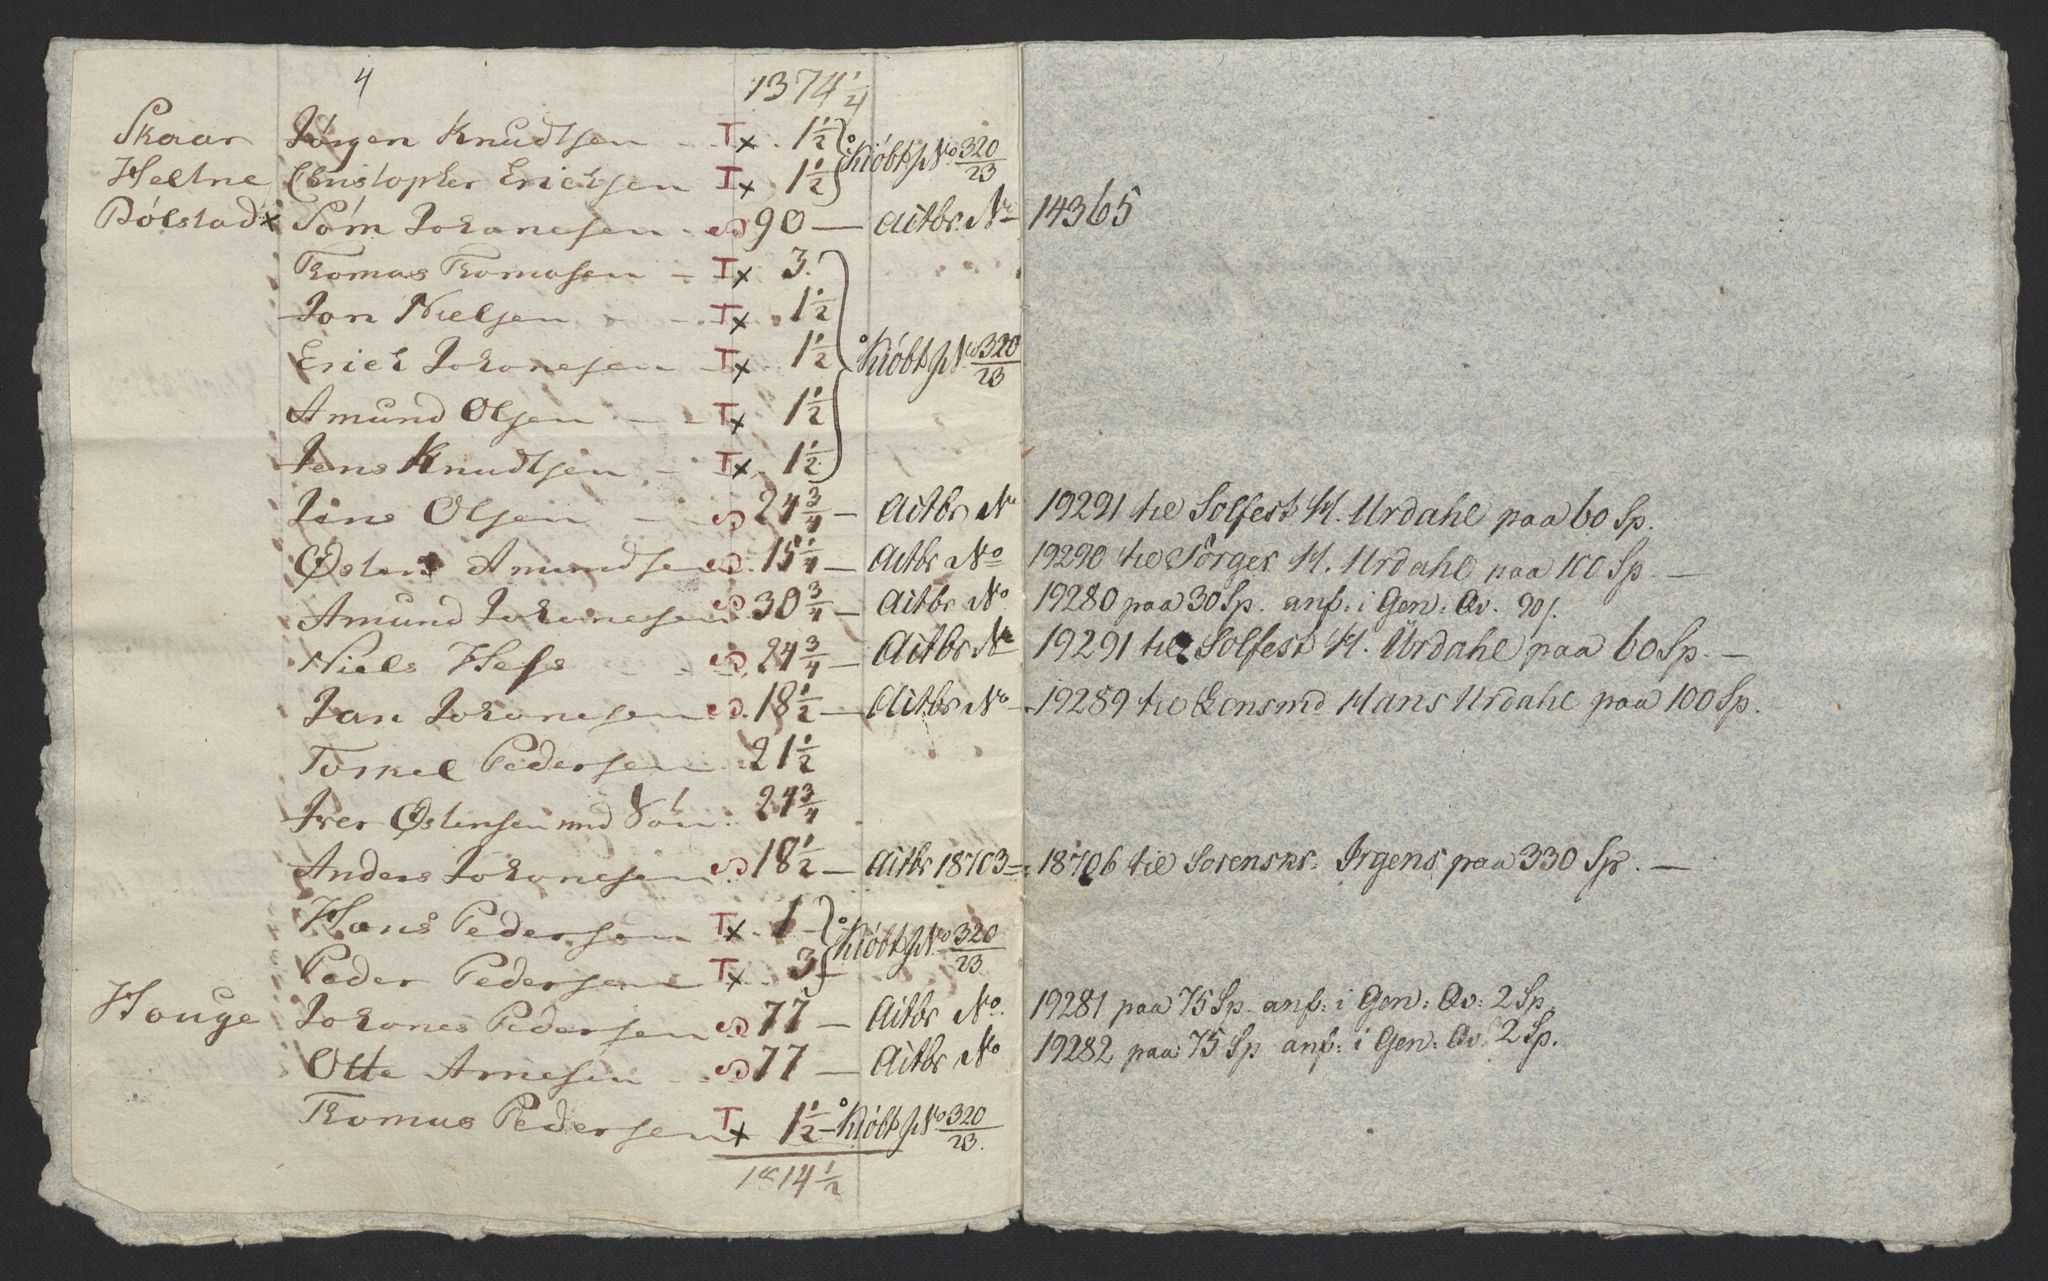 4 1374 1/4
Skaar Jørgen Knudtsen - Tx 1 1/2
Kiøbt J No 320/23
Heltne Christopher Erichsen Tx 1 1/2
Dølstad x Sørn Johanesen - S 90 — Actbr. No 14365
Thomas Thomasen - Tx 3.
Jon Nielsen - - Tx 1 1/2
Erich Johanesen - Tx 1 1/2 Kiøbt J No 320/23
Amund Olsen - - Tx 1 1/2
Jens Knudtsen - Tx 1 1/2
Jens Olsen - S 24 3/4 — Actbr No 19291 til Solfest H. Urdahl paa 60 Sp.
Østen Amundsen S 15 1/4 — Actbr No 19290 til Jørger H. Urdahl paa 100 Sp. —
Amund Johanesen S 30 3/4 — Actbr No 19280 paa 30 Sp. anf: i Gen: Qv. 90 s.
Niels Hess - - S 24 3/4 — Actbr No 19291 til Solfest H. Urdahl paa 60 Sp. —
Jan Johanesen S 18 1/2 — Actbr No - 19289 til Lensmd Hans Urdahl paa 100 Sp.
Torkel Pedersen 21 1/2
Iver Østensen med Søn. 24 3/4
Anders Johanesen S 18 1/2 — Actbr 18703 = 18706 til Sorenskr. Irgens paa 330 Sp. —
Hans Pedersen Tx 1
Kiøbt J No 320/23
Peder Pedersen Tx 3
Houge Johanes Pedersen S 77 — Actbr No. 19281 paa 75 Sp. anf: i Gen: Qv: 2 Sp.
Otte Arnesen - S 77 — Actbr No 19282 paa 75 Sp anf: i Gen: Qv. 2 Sp.
Thomas Pedersen Tx 1 1/2 - Kiøbt J No 320/23.
1814 1/2